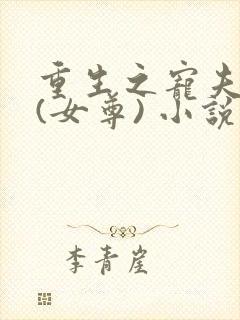 重生之寵夫
(女尊)小說
李青崖